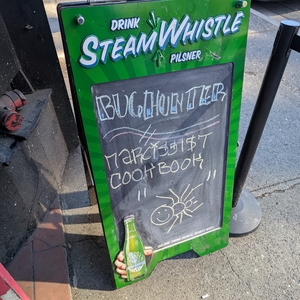 DRINK
STEAMWHISTLE
PILSNER
BUGHUNTER
NARCISSIST
COOKBOOK